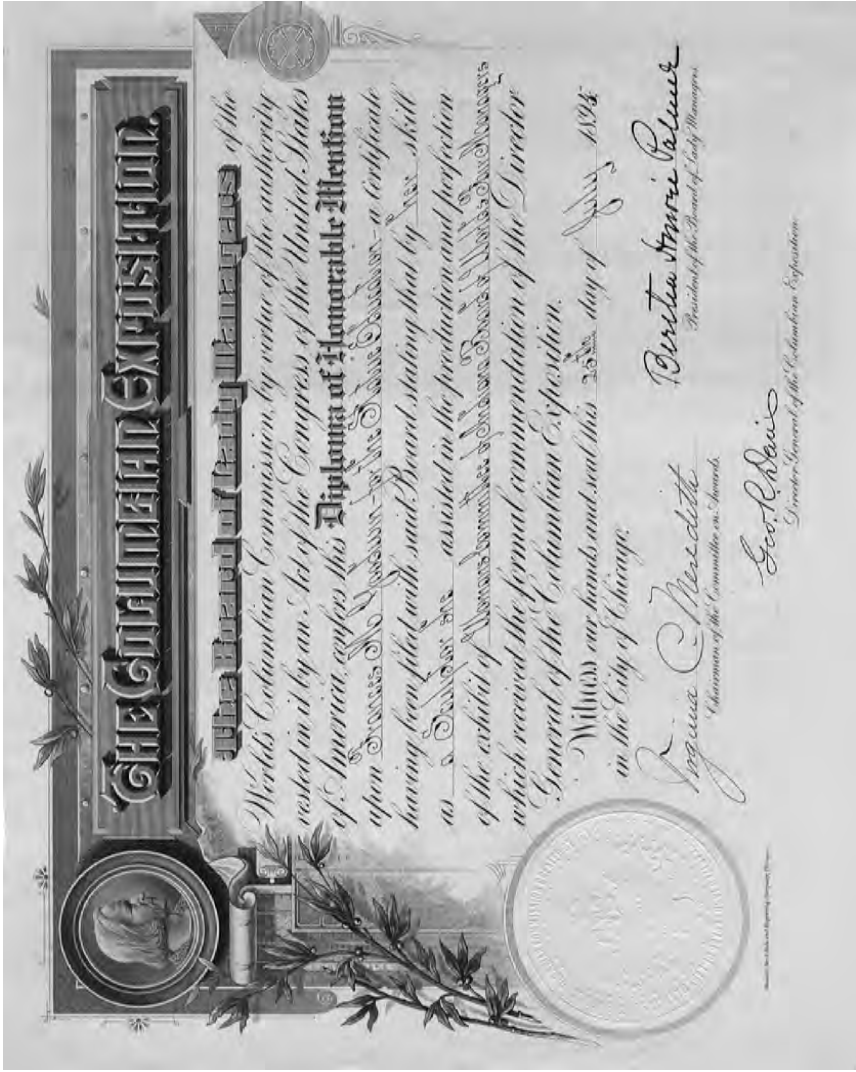 THE COLUMBIAN EXPOSITION.
The Board of Lady Managers of the
World's Columbian Commission, by virtue of the authority
vested in it by an Act of the Congress of the United States
of America, confers this Diploma of Honorable Mention
upon Frances M. Goodwin - a certificate
having been filed with said Board stating that by her skill
as a Sculptor she assisted in the production and perfection
of the exhibit of Managers
which received the formal commendation of the Director
General of the Columbian Exposition.
Witness our hands and seal this 25th day of July 1895
in the City of Chicago.
Virginia C. Meredith
Chairman of the Committee on Awards.
Bertha Honoré Palmer
President of the Board of Lady Managers.
Geo. R. Davis
Director General of the Columbian Exposition.